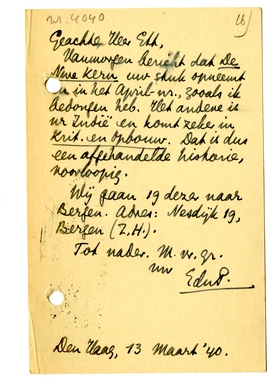 W.4040
16)
Geachte Heer Ett,
Vanmorgen bericht dat De
Nwe Kern uw stuk opneemt
en in het April-nr., zooals ik
bedongen heb. Het andere is
nr Indië en komt zeker in
Krit. en Opbouw. Dat is dus
een afgehandelde historie,
voorloopig.
Wij gaan 19 dezer naar
Bergen. Adres: Nesdijk 19,
Bergen (Z.H.).
Tot nader. M. vr. gr.
uw
EduP.
Den Haag, 13 Maart '40.